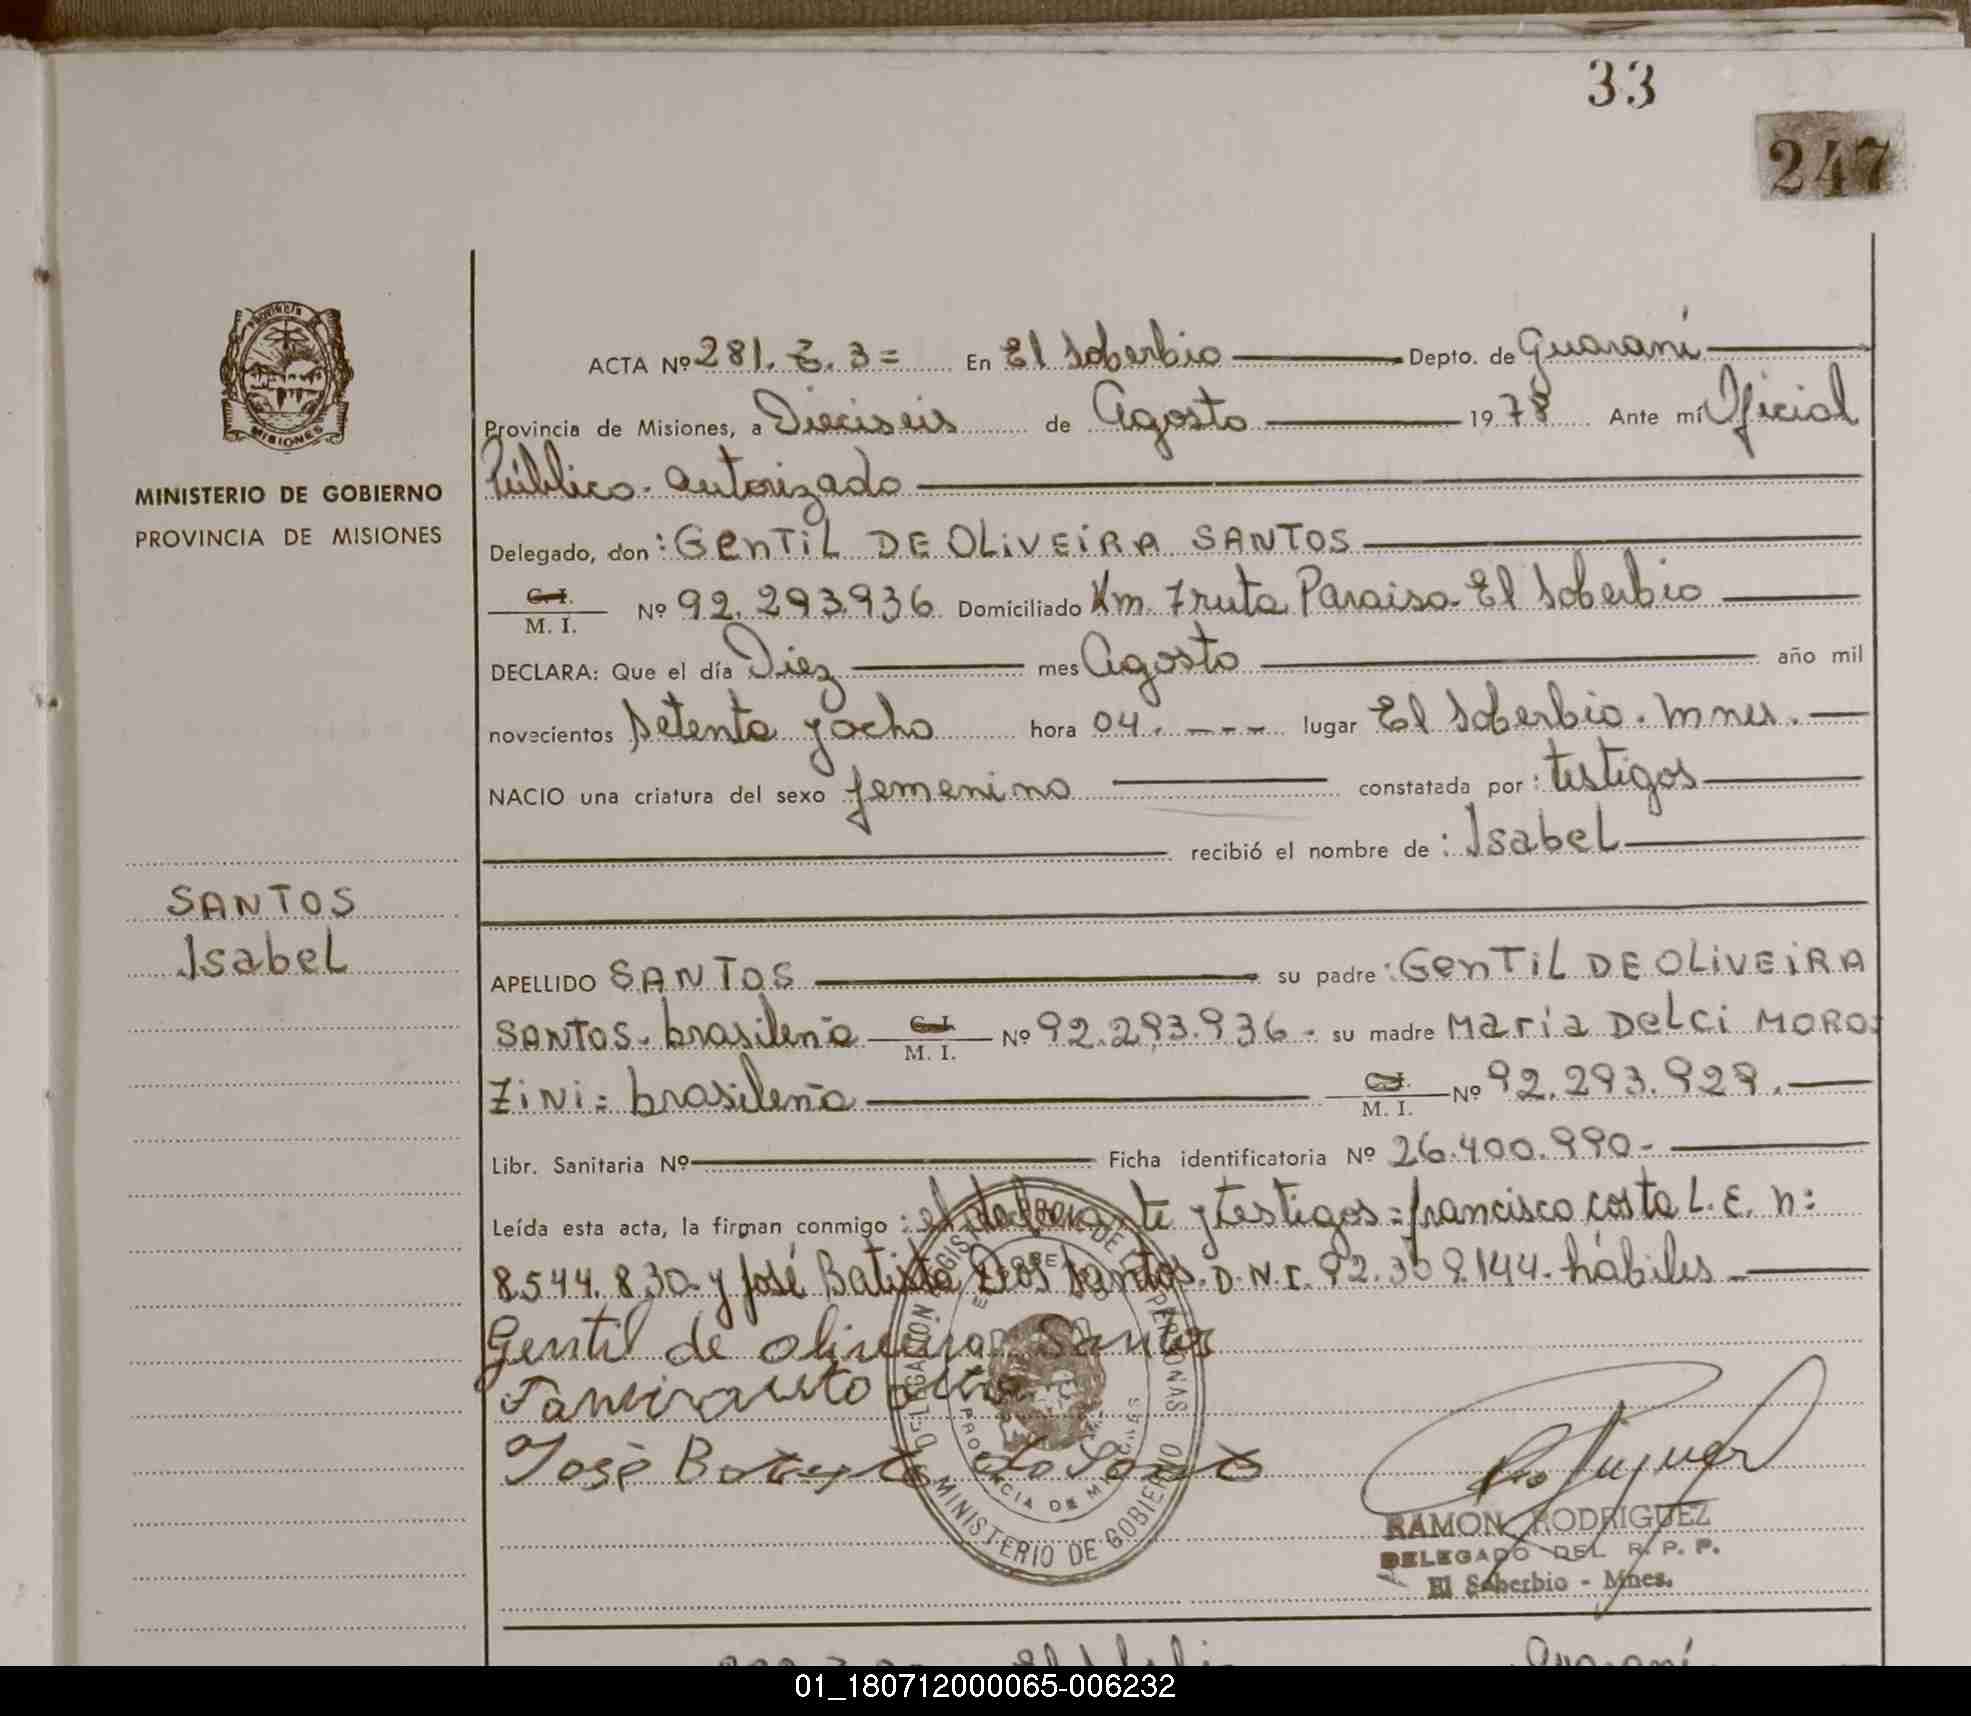 33
247
ACTA Nº 281. Z. 3= En El Soberbio Depto. de Guaraní
Provincia de Misiones, a Dieciseis de Agosto 1978 Ante mí Oficial
Público. autorizado
MINISTERIO DE GOBIERNO
PROVINCIA DE MISIONES
Delegado, don: GenTiL DE OLiVEiRA SANTOS
C. I. M. I. Nº 92.293.936 Domiciliado Km. Fruta Paraiso El Soberbio
DECLARA: Que el día Diez mes Agosto año mil
novecientos Setenta y ocho hora 04. --- lugar El Soberbio. Mnes.
NACIO una criatura del sexo femenino constatada por: testigos
recibió el nombre de: Isabel
SANTOS
Isabel
APELLIDO SANTOS su padre: GenTiL DE OLiVEiRA
SANTOS. brasileña C. I. M. I. Nº 92.293.936- su madre María DeLci MORO=
ZiNi= brasileña C. I. M. I. Nº 92.293.929.
Libr. Sanitaria Nº Ficha identificatoria Nº 26.400.990-
Leída esta acta, la firman conmigo: el declarante y testigos= francisco costa L. E. n:
8.544.830- y José Batista Dos Santos. D.N.I. 92.309.144. hábiles
Gentil de oliveira Santos
José
DELEGACION REGIST DE PERSONAS
MINISTERIO DE GOBIERNO
PROVINCIA DE MISIONES
RAMON RODRIGUEZ
DELEGADO DEL R. P. P.
El Soberbio - Mnes.
01_180712000065-006232